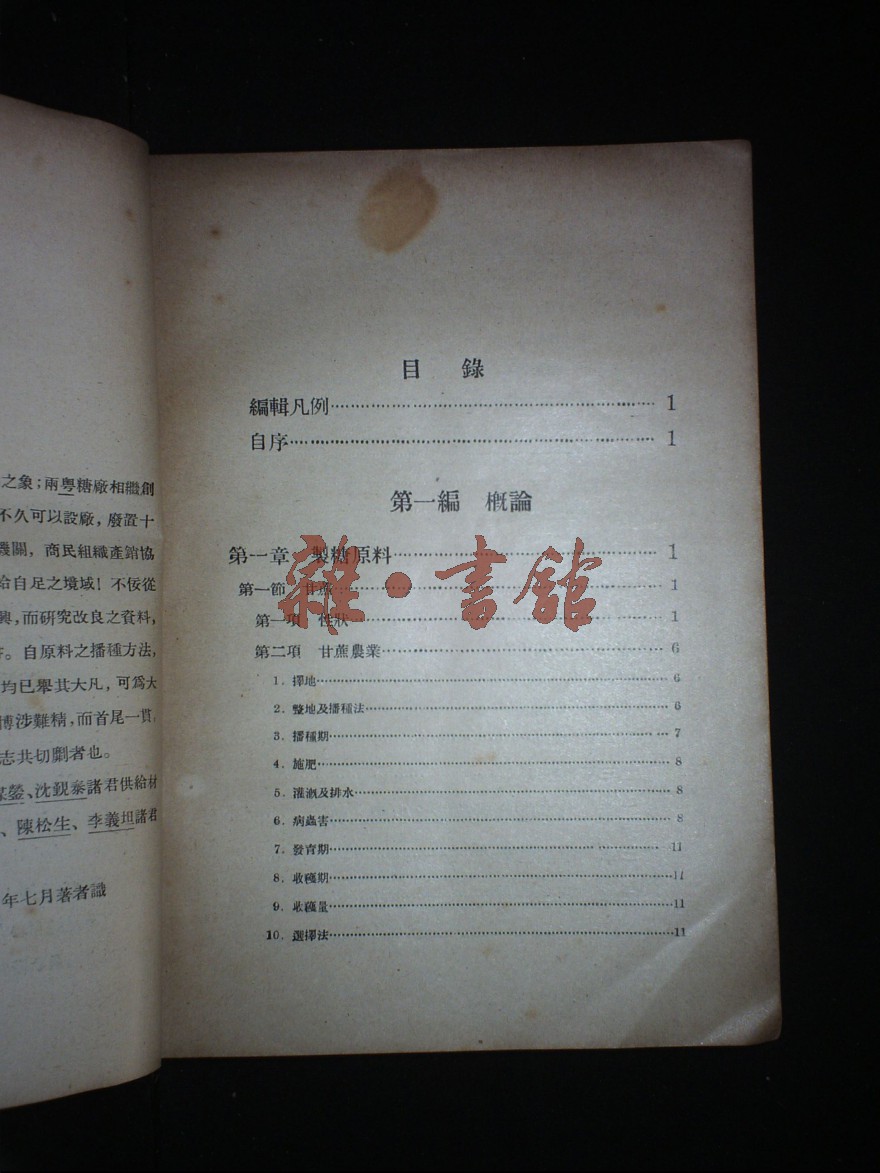 之象；兩粵糖廠相繼創
不久可以設廠，廢置十
機關，商民組織產銷協
給自足之境域！不佞從
興，而研究改良之資料，
。自原料之播種方法，
均已舉其大凡，可爲大
博涉難精，而首尾一貫，
志共切劘者也。
鎣、沈覲泰諸君供給材
、陳松生、李義坦諸君
年七月著者識
目錄
編輯凡例 1
自序 1
第一編 概論
第一章 製糖原料 1
第一節 甘蔗 1
第一項 性狀 1
第二項 甘蔗農業 6
1. 擇地 6
2. 整地及播種法 6
3. 播種期 7
4. 施肥 8
5. 灌漑及排水 8
6. 病蟲害 8
7. 發育期 11
8. 收穫期 11
9. 收穫量 11
10. 選擇法 11
雜·書館